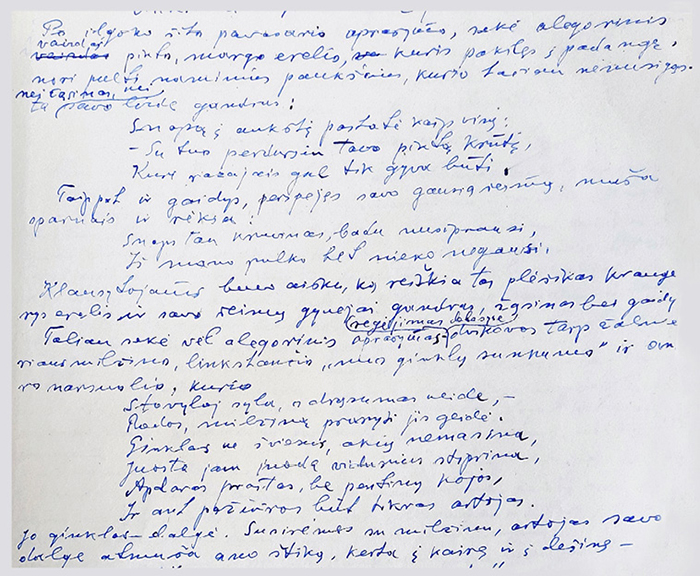 Po ilgoko šito pavasario aprašymo, sekė alegorinis
vaizdas
pikto, margo erelio, kuris pakilęs į padangę,
nori pulti naminius paukščius, kurio tačiau
nei žąsinas, nei
savo lizdą gandrus:
Snapą į aukštą pastatė kaip vinį:
– Su tuo perdursiu tavo piktą krūtį,
Kurį gal tik gyva būti.
Taip pat ir gaidys, perspėjęs savo gausią šeimą, muša
sparnais ir rėkia:
Snaps tau kruvinas, badu nusiprausi,
Iš mano pulko bet nieko negausi.
Klausytojams buvo aišku, ką reiškia tas plėšikas
erelis ir savo šeimų gynėjai gandras, žąsinas bei gaidys
Toliau sekė vėl alegorinis
aprašymas dvikovos tarp
milžino, linkstančio „nuo ginklų sunkumo” ir
ro narsuolio, kurio
Stovyloj syla, o drąsumas veide, –
Rados, milžiną praryti jis geidė.
Ginklas ne šviesus, akių nemasina,
Juosta jam juodą vidurius stiprina,
Apdaras prastas, be pentinų kojos,
Ir ant pažiūros būt tikras artojas.
Jo ginklas – dalgė. Susirėmęs su milžinu, artojas savo
dalge atmuša ano štiką, kerta į kairę ir į dešinę –